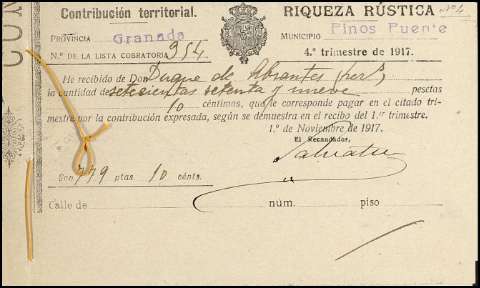 Contribución territorial.
RIQUEZA RÚSTICA
PROVINCIA Granada
MUNICIPIO Pinos Puente
N.º DE LA LISTA COBRATORIA 954
4.º trimestre de 1917.
He recibido de Don Duque de Abrantes
la cantidad de setecientas setenta y nueve pesetas
10 céntimos, que le corresponde pagar en el citado tri-
mestre por la contribución expresada, según se demuestra en el recibo del 1.er trimestre.
1.º de Noviembre de 1917.
El Recaudador,
Son 779 ptas. 10 cénts.
Calle de núm. piso